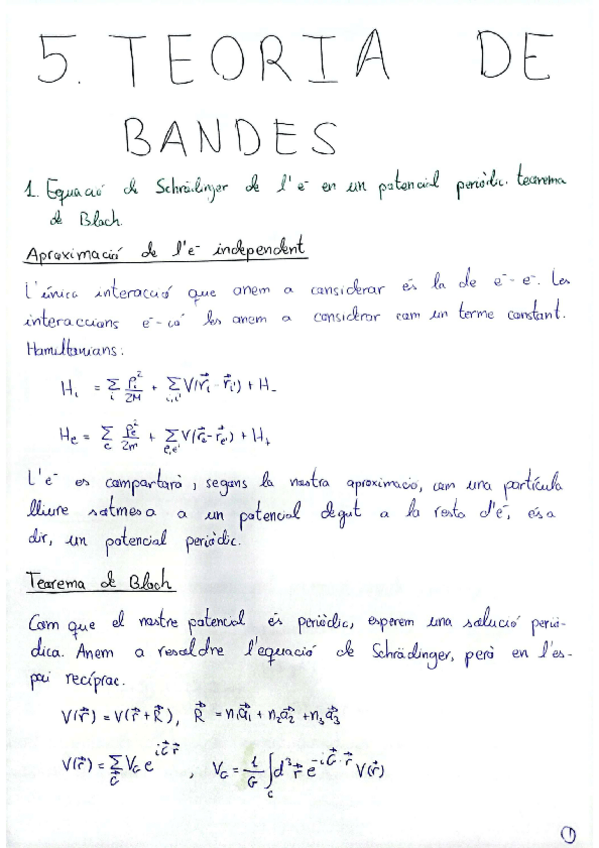 5. TEORIA DE
BANDES
1. Equació de Schrödinger de l'e⁻ en un potencial periòdic. teorema
de Bloch.
Aproximació de l'e⁻ independent
L'única interacció que anem a considerar és la de e⁻-e⁻. Les
interaccions e⁻-ió les anem a considerar com un terme constant.
Hamiltonians:
Hᵢ = Σᵢ pᵢ²/2M + Σᵢ,ᵢ' V(r⃗ᵢ - r⃗ᵢ') + H₋
Hₑ = Σₑ pₑ²/2m + Σₑ,ₑ' V(r⃗ₑ - r⃗ₑ') + H₊
L'e⁻ es comportarà, segons la nostra aproximació, com una partícula
lliure sotmesa a un potencial degut a la resta d'e⁻, és a
dir, un potencial periòdic.
Teorema de Bloch
Com que el nostre potencial és periòdic, esperem una solució perió-
dica. Anem a resoldre l'equació de Schrödinger, però en l'es-
pai recíproc.
V(r⃗) = V(r⃗ + R⃗), R⃗ = n₁a⃗₁ + n₂a⃗₂ + n₃a⃗₃
V(r⃗) = Σ_G⃗ V_G e^{iG⃗r⃗}, V_G = 1/G ∫_c d³r⃗ e^{-iG⃗·r⃗} V(r⃗)
1